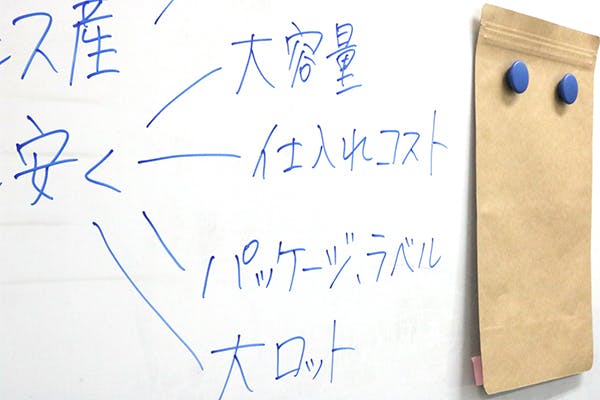 ス産
大容量
安く
仕入れコスト
パッケージ、ラベル
大ロット